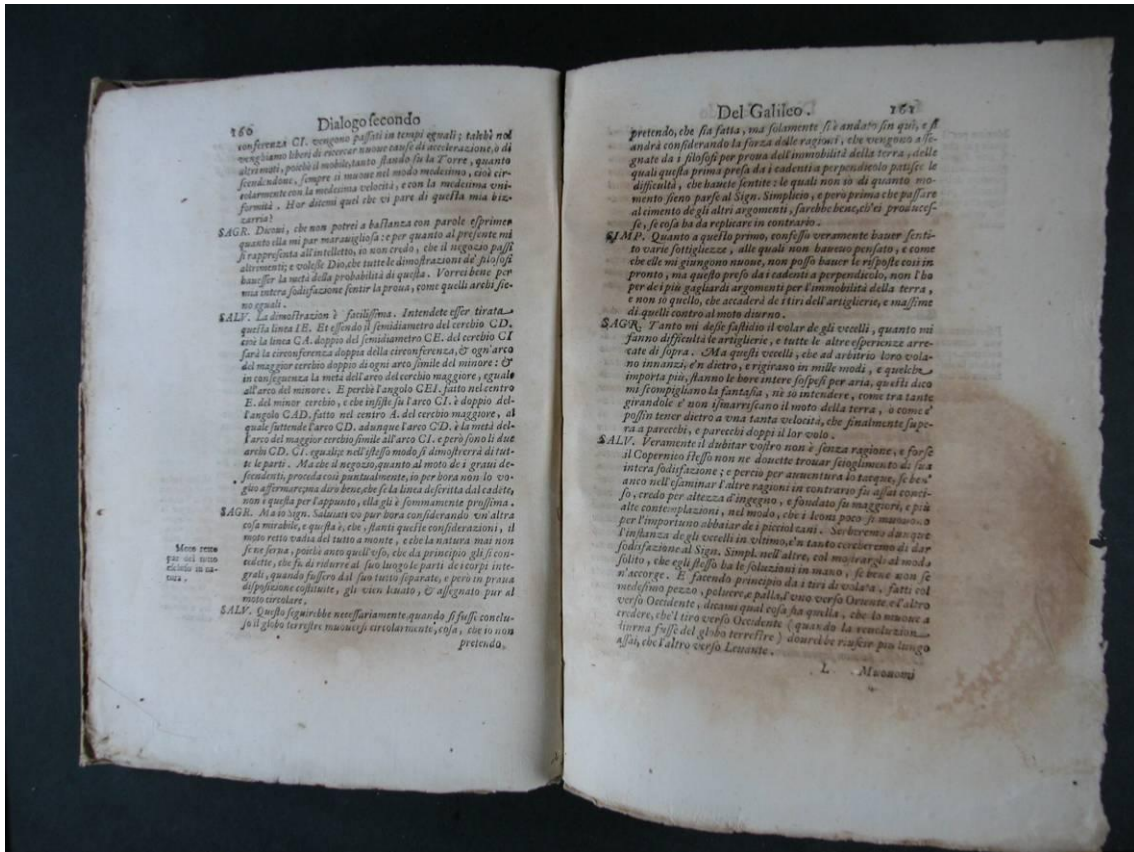 160 Dialogo secondo
conferenza CI. vengono passati in tempi eguali; talchè noi
venghiamo liberi di ricercar nuoue cause di accelerazione, o di
altri moti, poichè il mobile, tanto stando sù la Torre, quanto
scendendone, sempre si muoue nel modo medesimo, cioè cir-
colarmente con la medesima velocità, e con la medesima vni-
formità. Hor ditemi quel che vi pare di questa mia biz-
zarria?
SAGR. Dicoui, che non potrei a bastanza con parole esprimer
quanto ella mi par marauigliosa: e per quanto al presente mi
si rappresenta all'intelletto, io non credo, che il negozio passi
altrimenti; e volesse Dio, che tutte le dimostrazioni de' filosofi
hauesser la metà della probabilità di questa. Vorrei bene per
mia intera sodisfazione sentir la proua, come quelli archi sie-
no eguali.
SALV. La dimostrazion è facilissima. Intendete esser tirata
questa linea IE. Et essendo il semidiametro del cerchio CD.
cioè la linea CA. doppio del semidiametro CE. del cerchio CI
sarà la circonferenza doppia della circonferenza, & ogn'arco
del maggior cerchio doppio di ogni arco simile del minore: &
in conseguenza la metà dell'arco del cerchio maggiore, eguale
all'arco del minore. E perchè l'angolo CEI. fatto nel centro
E. del minor cerchio, e che insiste su l'arco CI. è doppio del-
l'angolo CAD. fatto nel centro A. del cerchio maggiore, al
quale suttende l'arco CD. adunque l'arco CD. è la metà del-
l'arco del maggior cerchio simile all'arco CI. e però sono li due
archi CD. CI. eguali; e nell'istesso modo si dimostrerà di tut-
te le parti. Ma che il negozio, quanto al moto de i graui de-
scendenti, proceda così puntualmente, io per hora non lo vo-
glio affermare; ma dirò bene, che se la linea descritta dal cadẽte,
non è questa per l'appunto, ella gli è sommamente prossima.
SAGR. Ma io Sign. Saluiati vò pur hora considerando vn'altra
cosa mirabile, e questa è, che, stanti queste considerazioni, il
moto retto vadia del tutto a monte, e che la natura mai non
se ne serua, poichè anco quell'vso, che da principio gli si con-
cedette, che fù di ridurre al suo luogo le parti de i corpi inte-
grali, quando fussero dal suo tutto separate, e però in praua
disposizione costituite, gli vien leuato, & assegnato pur al
moto circolare.
Moto retto
par del tutto
escluso in na-
tura.
SALV. Questo seguirebbe necessariamente, quando si fusse conclu-
so il globo terrestre muouersi circolarmente, cosa, che io non
pretendo,
Del Galileo. 161
pretendo, che sia fatta, ma solamente si è andato sin quì, e si
andrà considerando la forza delle ragioni, che vengono asse-
gnate da i filosofi per proua dell'immobilità della terra, delle
quali questa prima presa da i cadenti a perpendicolo patisce le
difficultà, che hauete sentite: le quali non sò di quanto mo-
mento sieno parse al Sign. Simplicio, e però prima che passare
al cimento de gli altri argomenti, sarebbe bene, ch'ei producess-
se, se cosa ha da replicare in contrario.
SIMP. Quanto a questo primo, confesso veramente hauer senti-
to varie sottigliezze, alle quali non haueuo pensato, e come
che elle mi giungono nuoue, non posso hauer le risposte così in
pronto, ma questo preso da i cadenti a perpendicolo, non l'ho
per de i più gagliardi argomenti per l'immobilità della terra,
e non sò quello, che accaderà de i tiri dell'artiglierie, e massime
di quelli contro al moto diurno.
SAGR. Tanto mi desse fastidio il volar de gli vccelli, quanto mi
fanno difficultà le artiglierie, e tutte le altre esperienze arre-
cate di sopra. Ma questi vccelli, che ad arbitrio loro vola-
no innanzi, e'n dietro, e rigirano in mille modi, e quel che
importa più, stanno le hore intere sospesi per aria, questi dico
mi scompigliano la fantasia, nè sò intendere, come tra tante
girandole e' non ismarriscano il moto della terra, o come e'
possin tener dietro a vna tanta velocità, che finalmente supe-
ra a parecchi, e parecchi doppi il lor volo.
SALV. Veramente il dubitar vostro non è senza ragione, e forse
il Copernico stesso non ne douette trouar scioglimento di sua
intera sodisfazione; e perciò per auuentura lo tacque, se ben'
anco nell'esaminar l'altre ragioni in contrario fù assai conci-
so, credo per altezza d'ingegno, e fondato sù maggiori, e più
alte contemplazioni, nel modo, che i leoni poco si muouono
per l'importuno abbaiar de i picciol cani. Serberemo dunque
l'instanza de gli vccelli in vltimo, e'n tanto cercheremo di dar
sodisfazione al Sign. Simpl. nell'altre, col mostrargli al modo
solito, che egli stesso ha le soluzioni in mano, se bene non se
n'accorge. E facendo principio da i tiri di volata, fatti col
medesimo pezzo, poluere, e palla, l'vno verso Oriente, e l'altro
verso Occidente, dicami qual cosa sia quella, che lo muoue a
credere, che'l tiro verso Occidente (quando la reuoluzion
diurna fusse del globo terrestre) dourebbe riuscir più lungo
assai, che l'altro verso Leuante.
L Muouomi